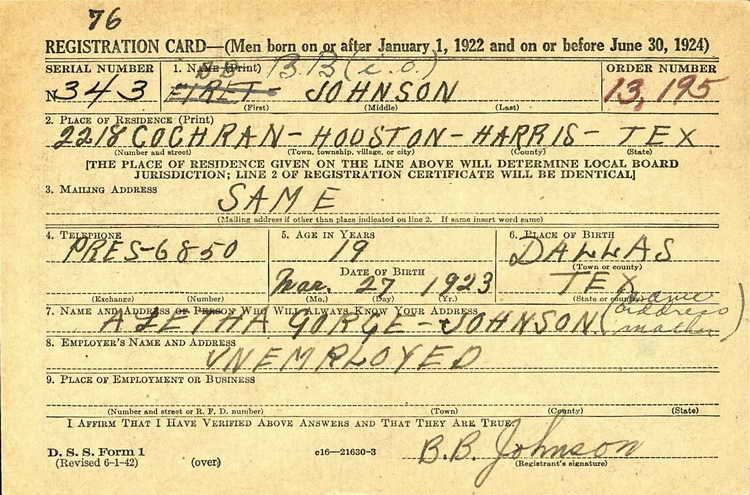 76
REGISTRATION CARD—(Men born on or after January 1, 1922 and on or before June 30, 1924)
SERIAL NUMBER 1. NAME (Print) B.B (i.o.) ORDER NUMBER
N 343 JOHNSON 13,195
(First) (Middle) (Last)
2. PLACE OF RESIDENCE (Print)
2218 COCHRAN - HOUSTON - HARRIS - TEX
(Number and street) (Town, township, village, or city) (County) (State)
[THE PLACE OF RESIDENCE GIVEN ON THE LINE ABOVE WILL DETERMINE LOCAL BOARD
JURISDICTION; LINE 2 OF REGISTRATION CERTIFICATE WILL BE IDENTICAL]
3. MAILING ADDRESS
SAME
(Mailing address if other than place indicated on line 2. If same insert word same)
4. TELEPHONE 5. AGE IN YEARS 6. PLACE OF BIRTH
PRES-6850 19 DALLAS
(Town or county)
DATE OF BIRTH
Mar. 27 1923 TEX
(Exchange) (Number) (Mo.) (Day) (Yr.) (State or country)
7. NAME AND ADDRESS OF PERSON WHO WILL ALWAYS KNOW YOUR ADDRESS
ALETHA GORGE - JOHNSON (same address mother)
8. EMPLOYER'S NAME AND ADDRESS
UNEMPLOYED
9. PLACE OF EMPLOYMENT OR BUSINESS
(Number and street or R. F. D. number) (Town) (County) (State)
I AFFIRM THAT I HAVE VERIFIED ABOVE ANSWERS AND THAT THEY ARE TRUE.
D. S. S. Form 1
(Revised 6-1-42) (over) c16—21630-3 B.B. Johnson
(Registrant's signature)